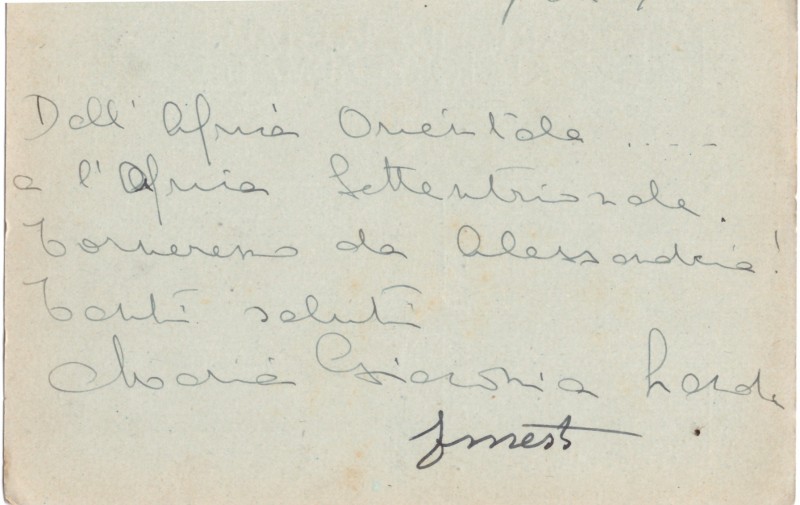 Dall' Africa Orientale .....
a l'Africa Settentrionale.
Torneremo da Alessandria!
Tanti saluti
Maria Giacomia
Ernest